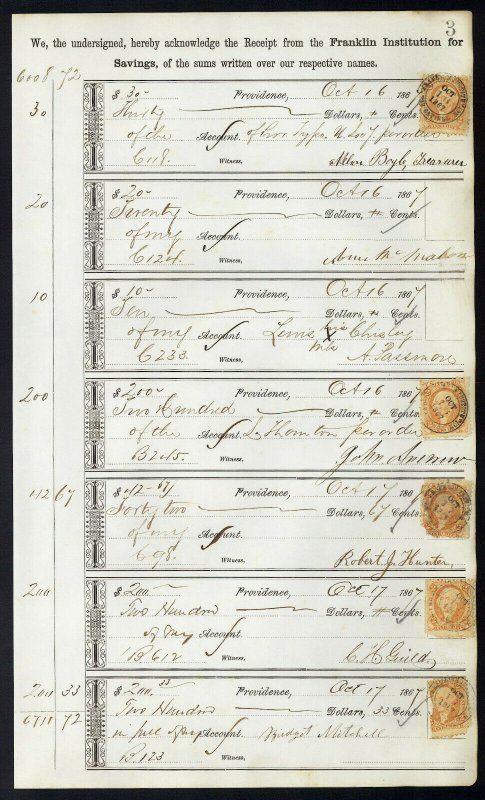 3
We, the undersigned, hereby acknowledge the Receipt from the Franklin Institution for
Savings, of the sums written over our respective names.
6008 72
30
$ 30- Providence, Oct 16 1867
Thirty Dollars, Cents.
of the Account. of per order
6118. Witness, Treasurer
20
$ 20- Providence, Oct 16 1867
Twenty Dollars, Cents.
of my Account.
6124. Witness, Mc Mahon
10
$ 10- Providence, Oct 16 1867
Ten Dollars, Cents.
of my Account. Lewis his X Christy
6233 Witness, A. Passmore
200
$ 200- Providence, Oct 16 1867
Two Hundred Dollars, Cents.
of the Account. Thornton per order
B245. Witness, John
42 67
$ 42-67 Providence, Oct 17 1867
Forty two Dollars, 67 Cents.
of my Account.
698. Witness, Robert J. Hunter,
200
$ 200- Providence, Oct 17 1867
Two Hundred Dollars, Cents.
of my Account.
B612 Witness, C. H. Guild
200 33
$ 200.33 Providence, Oct 17 1867
Two Hundred Dollars, 33 Cents.
6711 72
in full of my Account. Bridget Mitchell
B.123 Witness,